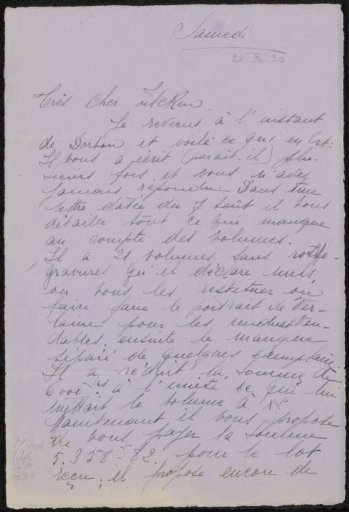 Samedi
21 X 21
Très cher Zilcken
Je reviens à l'instant
de Dorbon et voilà ce qui en est:
Il vous a écrit (paraît-il) plu-
sieurs fois, et vous n'avez
jamais répondu. Dans une
lettre datée du 7 août il vous
détaille tout ce qui manque
au compte des volumes.
Il a 21 volumes sans
gravures qu'il déclare
ou vous les restituer ou
faire faire le portrait de Ver-
laine pour les
dables, ensuite le manque
de quelques exemplaires
Il a réduit la somme de
6000 à l'unité ce qui lui
mettait le volume à
Maintenant il vous propose
de vous payer la somme
5.358-82 pour le lot
reçu, il propose encore de